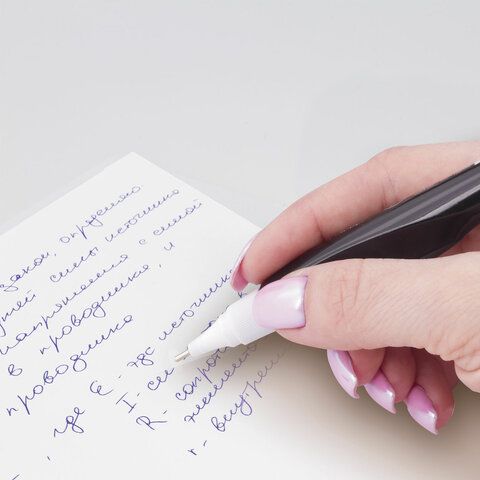 закон, определяю
силы источника
напряжения с силой
в проводнике, и
проводника
, где Ɛ - эдс источника
I - си
R - сопрот
r - внутрен